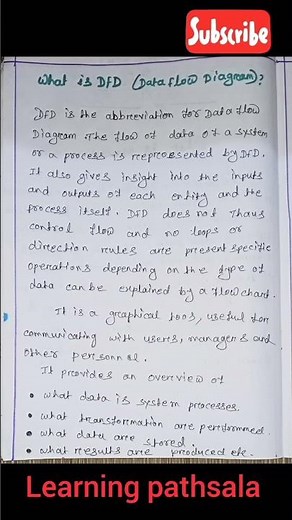 Subscribe
What is DFD (Data Flow Diagram)?
DFD is the abbreviation for Data flow
Diagram. The flow of data of a system
or a process is represented by DFD.
It also gives insight into the inputs
and outputs of each entity and the
process itself. DFD does not thaus
control flow and no loops or
direction rules are present specific
operations depending on the type of
data can be explained by a flowchart.
It is a graphical tool, useful for
communicating with users, managers and
other personnal.
It provides an overview of
• what data is system processes.
• what transformation are performmed.
• what data are stored.
• what results are produced etc.
Learning pathsala